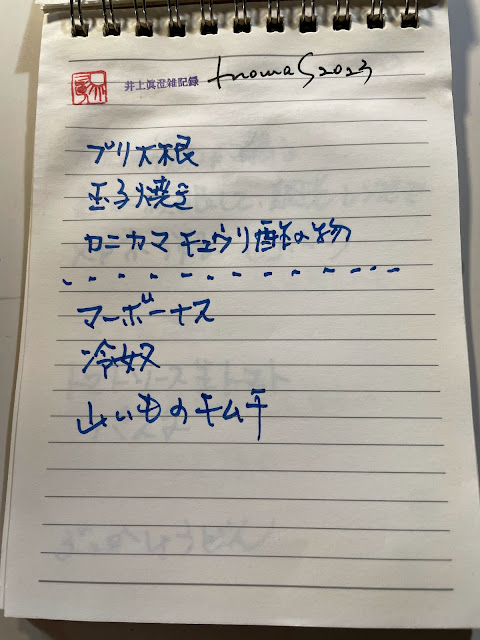 井上眞澄雑記録
ブリ大根
玉子焼き
カニカマキュウリ酢の物
マーボーナス
冷奴
山いものキムチ